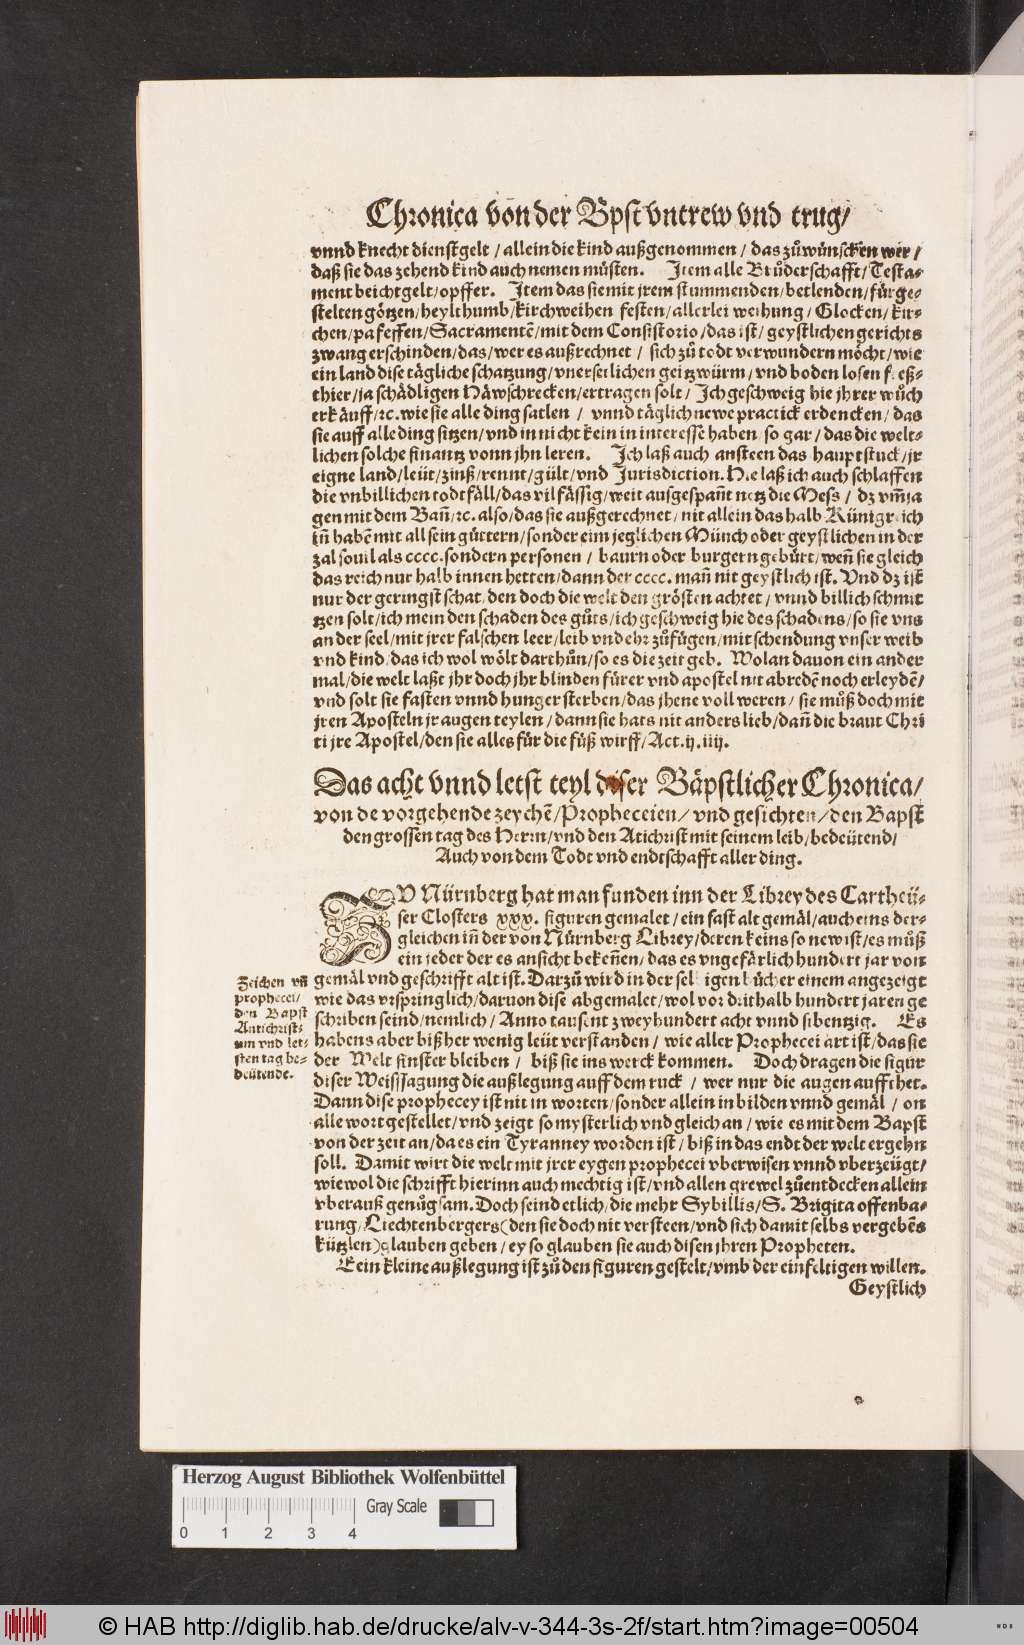 Chronica von der Bpst vntrew vnd trug/
vnnd knecht dienstgelt / allein die kind außgenommen / das zů wünschen wer /
daß sie das zehend kind auch nemen můsten. Item alle Brůderschafft/ Testa-
ment beichtgelt/ opffer. Item das sie mit jrem stummenden/ betlenden/ fürge-
stelten götzen/ heylthumb/ kirchweihen festen/ allerlei weihung/ Glocken/ kir-
chen/ Sacramentē/ mit dem Consistorio/ das ist/ geystlichen gerichts
zwang erschinden/ das/ wer es außrechnet / sich zů todt verwundern möcht/ wie
ein land dise tägliche schatzung/ vnersetlichen geitzwürm/ vnd boden losen freß-
thier/ ja schädligen Häwschrecken/ ertragen solt / Ich geschweig hie jhrer wůch
erkäuff/ ꝛc. wie sie alle ding satlen / vnnd täglich newe practick erdencken/ das
sie auff alle ding sitzen/ vnd in nicht kein in interesse haben/ so gar / das die welt-
lichen solche finantz vonn jhn leren. Ich laß auch ansteen das hauptstuck/ jr
eigne land/ leüt/ zinß/ rennt/ gült/ vnd Jurisdiction. Hie laß ich auch schlaffen
die vnbillichen todtfäll/ das vilfässig/ weit ausgespañt netz die Mess / dz vm̃ja
gen mit dem Bañ/ ꝛc. also/ das sie außgerechnet/ nit allein das halb Künigreich
iñ habē mit all sein gůttern/ sonder eim jeglichen Münch oder geystlichen in der
zal souil als cccc. sondern personen / baurn oder burgern gebürt/ weñ sie gleich
das reich nur halb innen hetten/ dann der cccc. mañ nit geystlich ist. Vnd dz ist
nur der geringst schat/ den doch die welt den grösten achtet / vnnd billich schmit
tzen solt/ ich mein den schaden des gůts/ ich geschweig hie des schadens/ so sie vns
an der seel/ mit jrer falschen leer/ leib vnd ehr zůfügen/ mit schendung vnser weib
vnd kind/ das ich wol wölt darthůn/ so es die zeit geb. Wolan dauon ein ander
mal/ die welt laßt jhr doch jhr blinden fürer vnd apostel nit abredē noch erleydē/
vnd solt sie fasten vnnd hunger sterben/ das jhene voll weren / sie můß doch mit
jren Aposteln jr augen teylen / dann sie hats nit anders lieb/ dañ die braut Chri
sti jre Apostel/ den sie alles für die füß wirff/ Act. ij. iiij.
Das acht vnnd letst teyl diser Bäpstlicher Chronica/
von de vorgehende zeychē/ Propheceien/ vnd gesichten/ den Bapst
den grossen tag des Herrn/ vnd den Atichrist mit seinem leib/ bedeütend/
Auch von dem Todt vnd endtschafft aller ding.
ZV Nürnberg hat man funden inn der Librey des Cartheü-
ser Closters xxx. figuren gemalet / ein fast alt gemäl/ auch eins der-
gleichen iñ der von Nürnberg Librey/ deren keins so new ist/ es můß
ein jeder der es ansicht bekeñen/ das es vngefärlich hundert jar von
gemäl vnd geschrifft alt ist. Darzů wird in der selbigen bücher einem angezeigt
wie das vrspringlich/ daruon dise abgemalet/ wol vor drithalb hundert jaren ge
schriben seind/ nemlich / Anno tausent zweyhundert acht vnnd sibentzig. Es
habens aber bißher wenig leüt verstanden / wie aller Prophecei art ist/ das sie
der Welt finster bleiben / biß sie ins werck kommen. Doch dragen die figur
diser Weissagung die außlegung auff dem ruck / wer nur die augen auffthet.
Dann dise prophecey ist nit in worten/ sonder allein in bilden vnnd gemäl / on
alle wort gestellet/ vnd zeigt so mysterlich vnd gleich an / wie es mit dem Bapst
von der zeit an/ da es ein Tyranney worden ist / biß in das endt der welt ergehn
soll. Damit wirt die welt mit jrer eygen prophecei vberwisen vnnd vberzeügt/
wiewol die schrifft hierinn auch mechtig ist/ vnd allen grewel zůentdecken allein
vberauß genůgsam. Doch seind etlich/ die mehr Sybillis/ S. Brigita offenba-
rung/ Liechtenbergers (den sie doch nit versteen/ vnd sich damit selbs vergebēs
kützlen) glauben geben / ey so glauben sie auch disen jhren Propheten.
Ein kleine außlegung ist zů den figuren gestelt/ vmb der einfeltigen willen.
Geystlich
Zeichen vñ
prophecei/
den Bapst
Antichrist-
um vnd let-
sten tag be-
deütende.
Herzog August Bibliothek Wolfenbüttel
0 1 2 3 4
Gray Scale
© HAB http://diglib.hab.de/drucke/alv-v-344-3s-2f/start.htm?image=00504